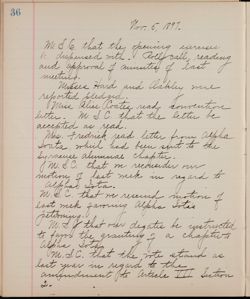 36
Nov. 5, 1897.
M. S. C. that the opening exercises
be dispensed with. Roll call, reading
and approval of minutes of last
meeting.
Misses Hard and Oakley were
reported pledged.
Miss Alice Coates read convention
letter. M. S. C. that the letter be
accepted as read.
Mrs. read letter from Alpha
Iota which had been sent to the
Syracuse alumnae chapter.
M. S. C. that we reconsider our
motion of last week in regard to
Alpha Iota.
M. S. C. that we rescind motion of
last week favoring Alpha Iota's
petitioning.
M. S. that our delegate be instructed
to favor the granting of a chapter to
Alpha Iota.
M. S. C. that the vote stand as
last year in regard to the
amendment to Article III Section
2.